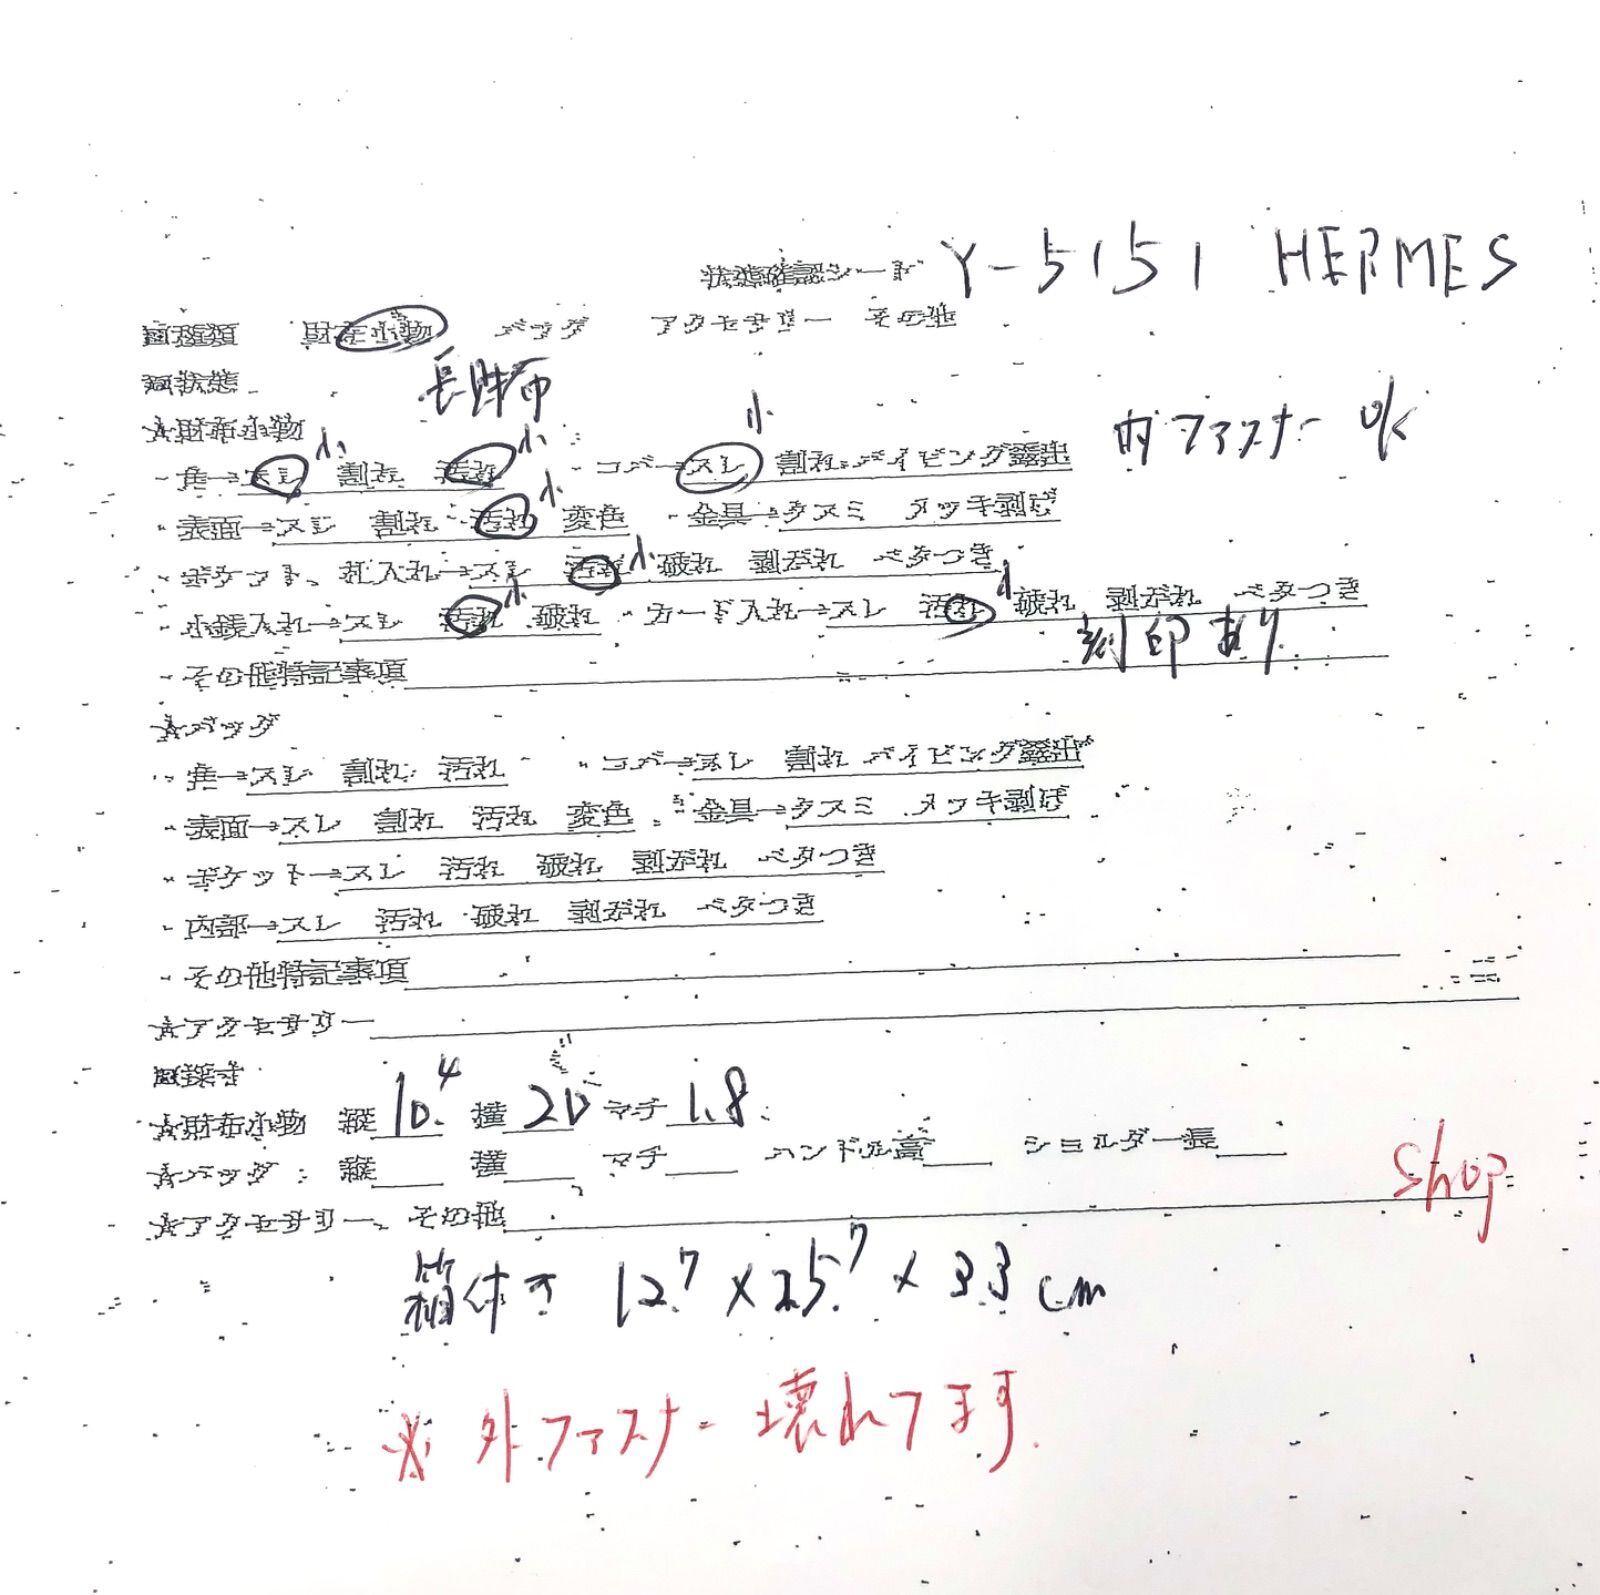 状態確認シート Y-5151 HERMES
■種類 財布小物 バッグ アクセサリー その他
■状態 長財布
★財布小物 内ファスナー OK
・角→スレ 小 割れ 汚れ 小 ・コバ→スレ 小 割れ パイピング露出
・表面→スレ 割れ 汚れ 小 変色 ・金具→クスミ メッキ剥げ
・ポケット、札入れ→スレ 汚れ 小 破れ 剥がれ ベタつき
・小銭入れ→スレ 汚れ 小 破れ ・カード入れ→スレ 汚れ 小 破れ 剥がれ ベタつき
・その他特記事項 刻印あり
★バッグ
・角→スレ 割れ 汚れ ・コバ→スレ 割れ パイピング露出
・表面→スレ 割れ 汚れ 変色 ・金具→クスミ メッキ剥げ
・ポケット→スレ 汚れ 破れ 剥がれ ベタつき
・内部→スレ 汚れ 破れ 剥がれ ベタつき
・その他特記事項
★アクセサリー
■採寸
★財布小物 縦 10.4 横 20 マチ 1.8
★バッグ : 縦 横 マチ ハンドル高 ショルダー長
★アクセサリー、その他 shop
箱 12.7 × 25.7 × 3.3 cm
※ 外ファスナー 壊れてます